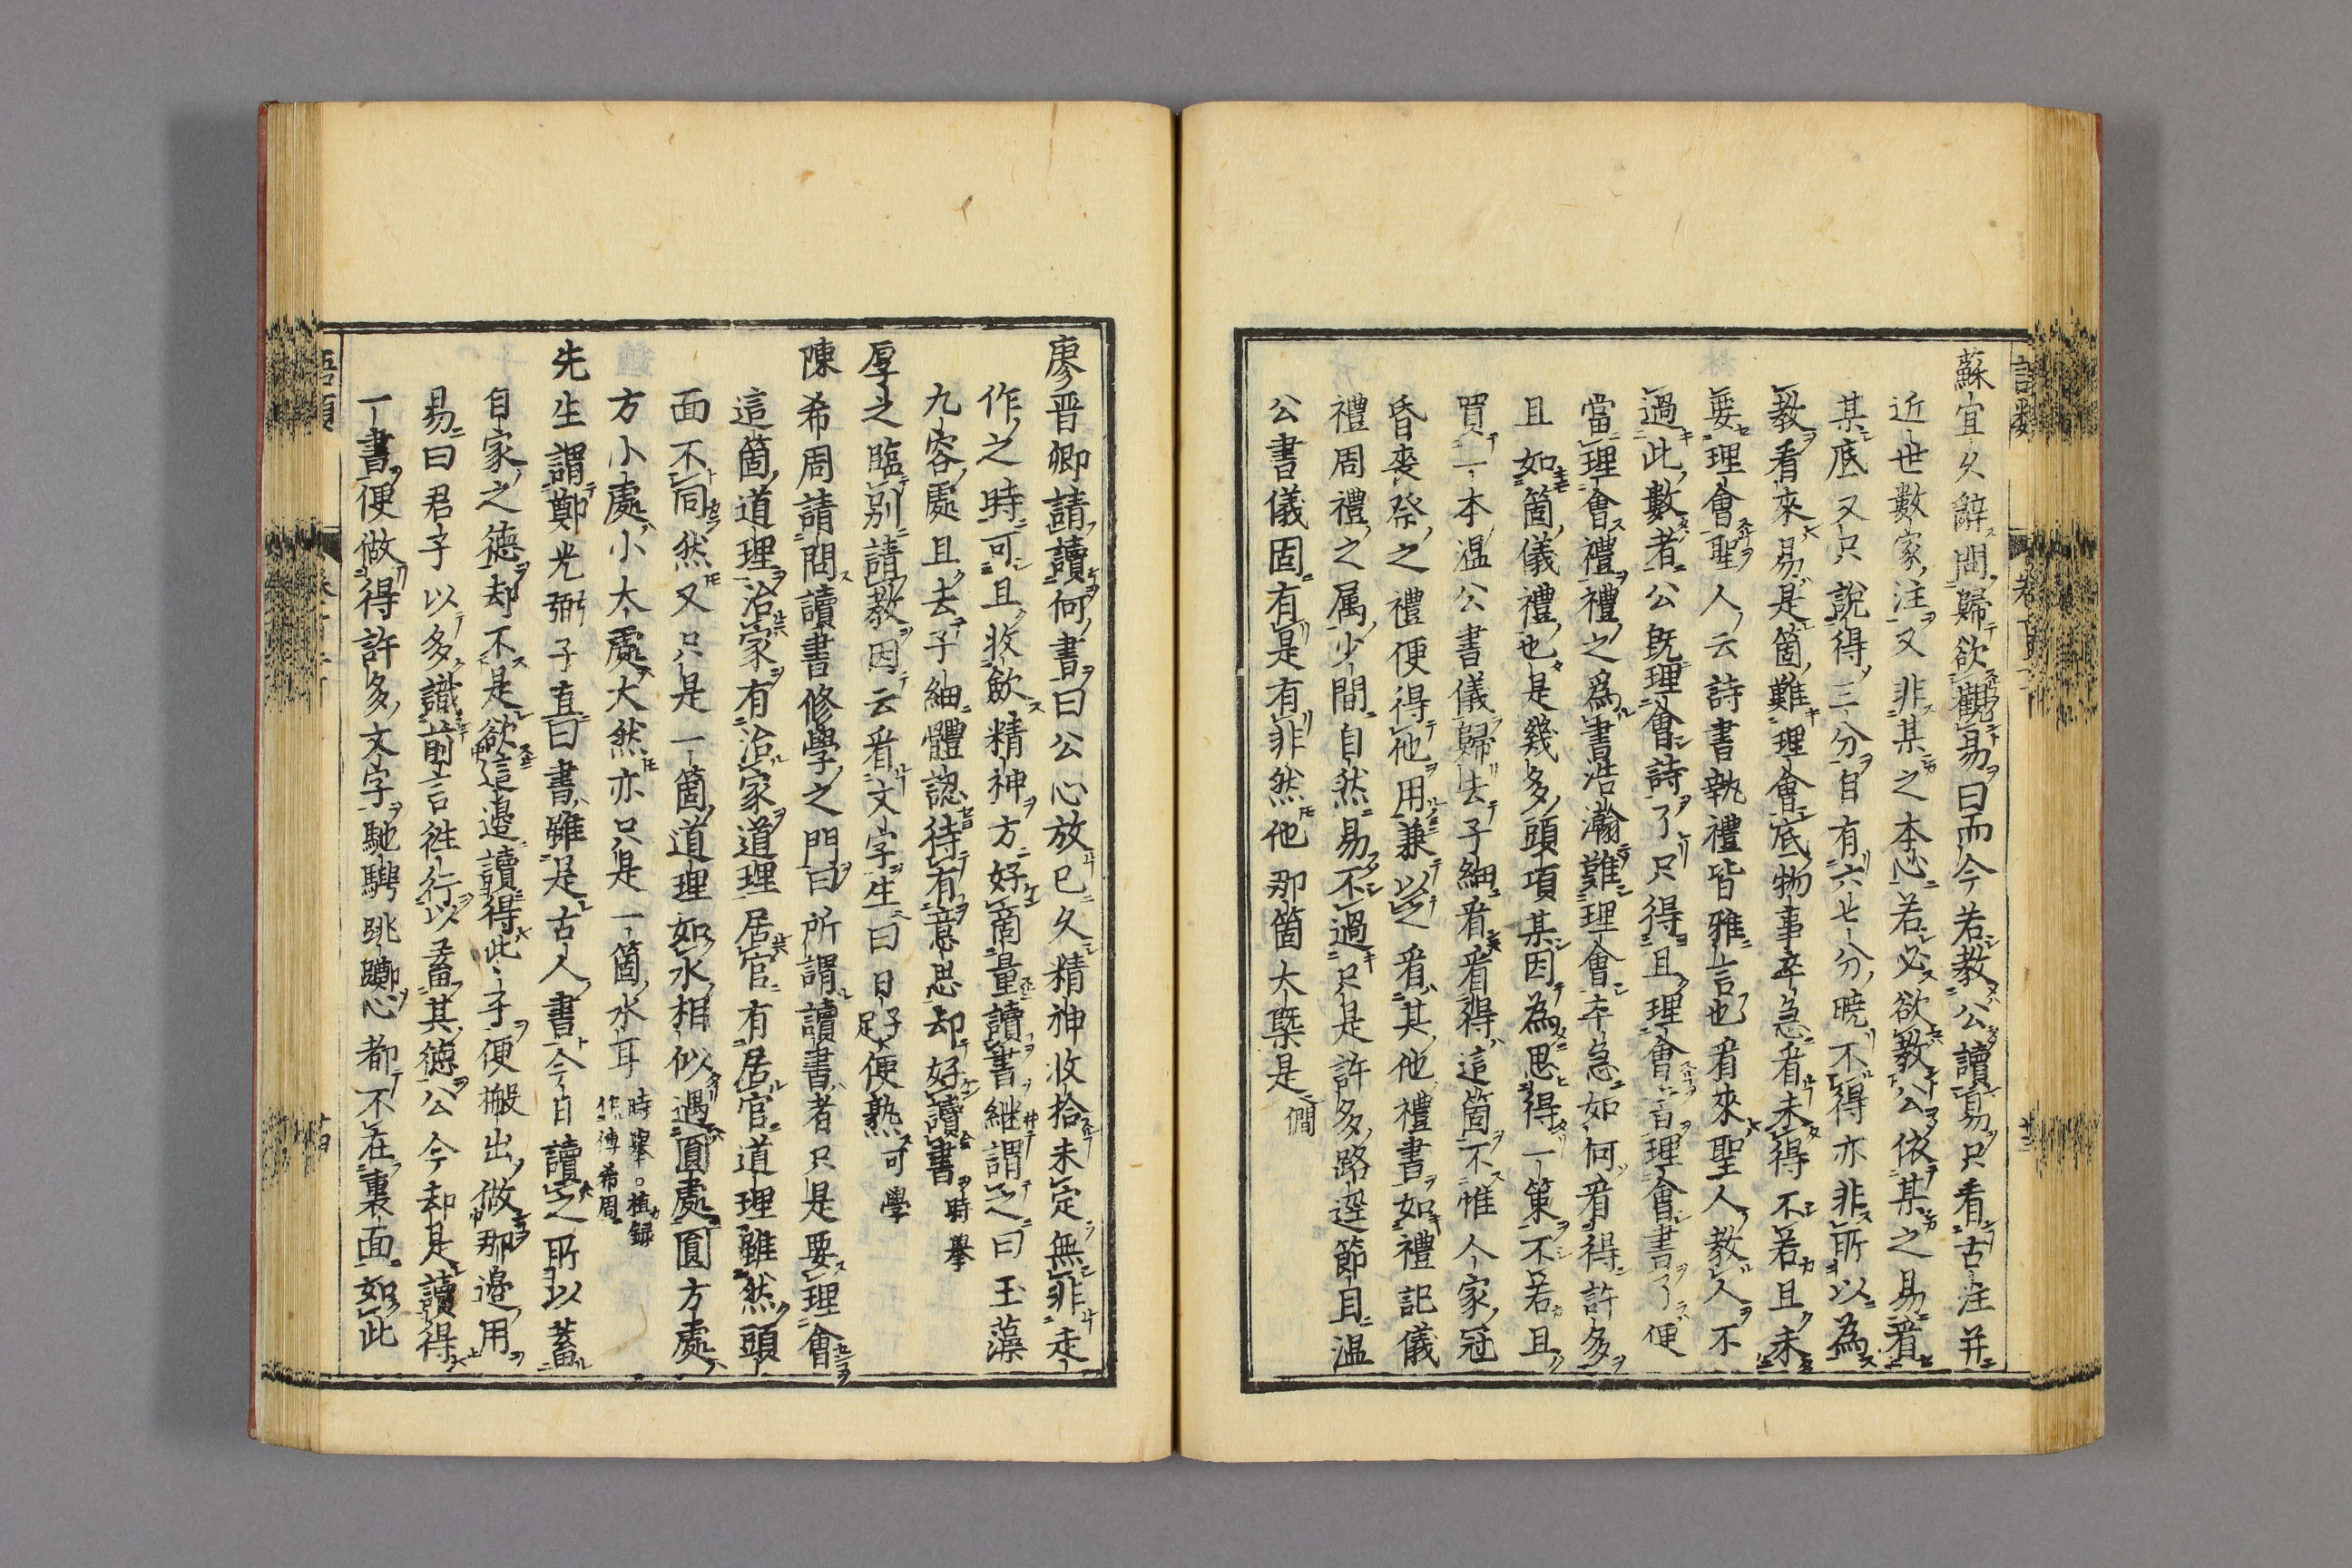 蘇宜久辭問歸欲觀易曰而今若教公讀易只看古注并
近世數家注又非某之本心若必欲教公依某之易看
某底又只說得三分自有六七分曉不得亦非所以為
教看來易是箇難理會底物事卒急看未得不若且未
要理會聖人云詩書執禮皆雅言也看來聖人教人不
過此數者公既理會詩了只得且理會書理會書了便
當理會禮禮之為書浩瀚難理會卒急如何看得許多
且如箇儀禮也是幾多頭項某因為思得一策不若且
買一本温公書儀歸去子細看看得這箇不惟人家冠
昏喪祭之禮便得他用兼以之看其他禮書如禮記儀
禮周禮之属少間自然易不過只是許多路逕節目温
公書儀固有是有非然他那箇大槩是 僩
廖晋卿請讀何書曰公心放已久精神收拾未定無非走
作之時可且收歛精神方好商量讀書継謂之曰玉藻
九容處且去子細體認待有意思却好讀書 時舉
厚之臨別請教因云看文字生曰日子足便熟 可學
陳希周請問讀書修學之門曰所謂讀書者只是要理會
這箇道理治家有治家道理居官有居官道理雖然頭
面不同然又只是一箇道理如水相似遇圓處圓方處
方小處小大處大然亦只是一箇水耳 時舉○植録作傅希周
先生謂鄭光弼子直曰書雖是古人書今日讀之所以蓄
自家之德却不是欲這邊讀得此子便搬出做那邊用
易曰君子以多識前言徃行以畜其德公今却是讀得
一書便做得許多文字馳騁跳躑心都不在裏面如此